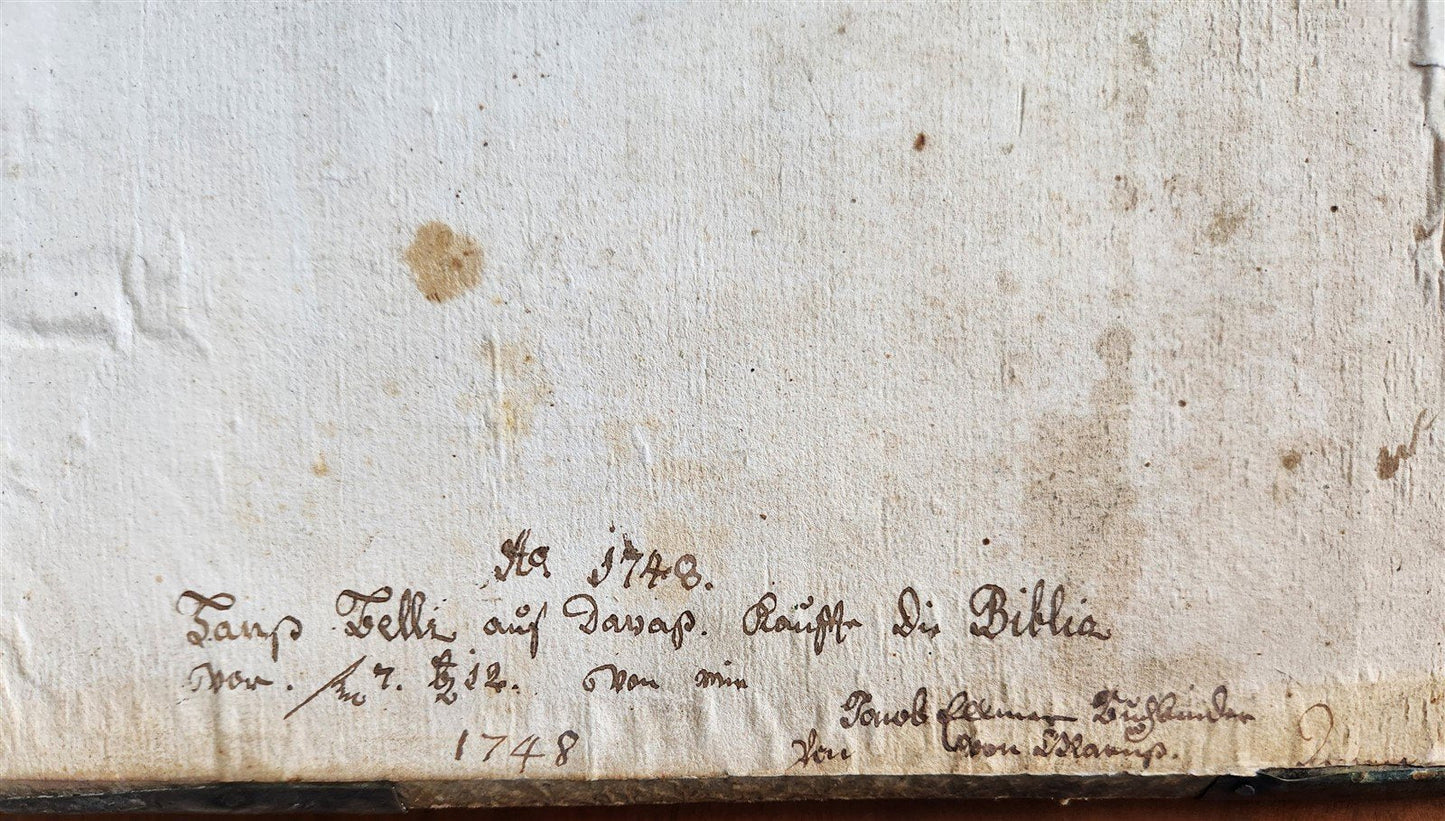 Ao 1748.
Hanß Belli auf Davaß. Kauffte die Biblia
vor. 7. 12. von mir
Jacob Buchbinder
von von
1748